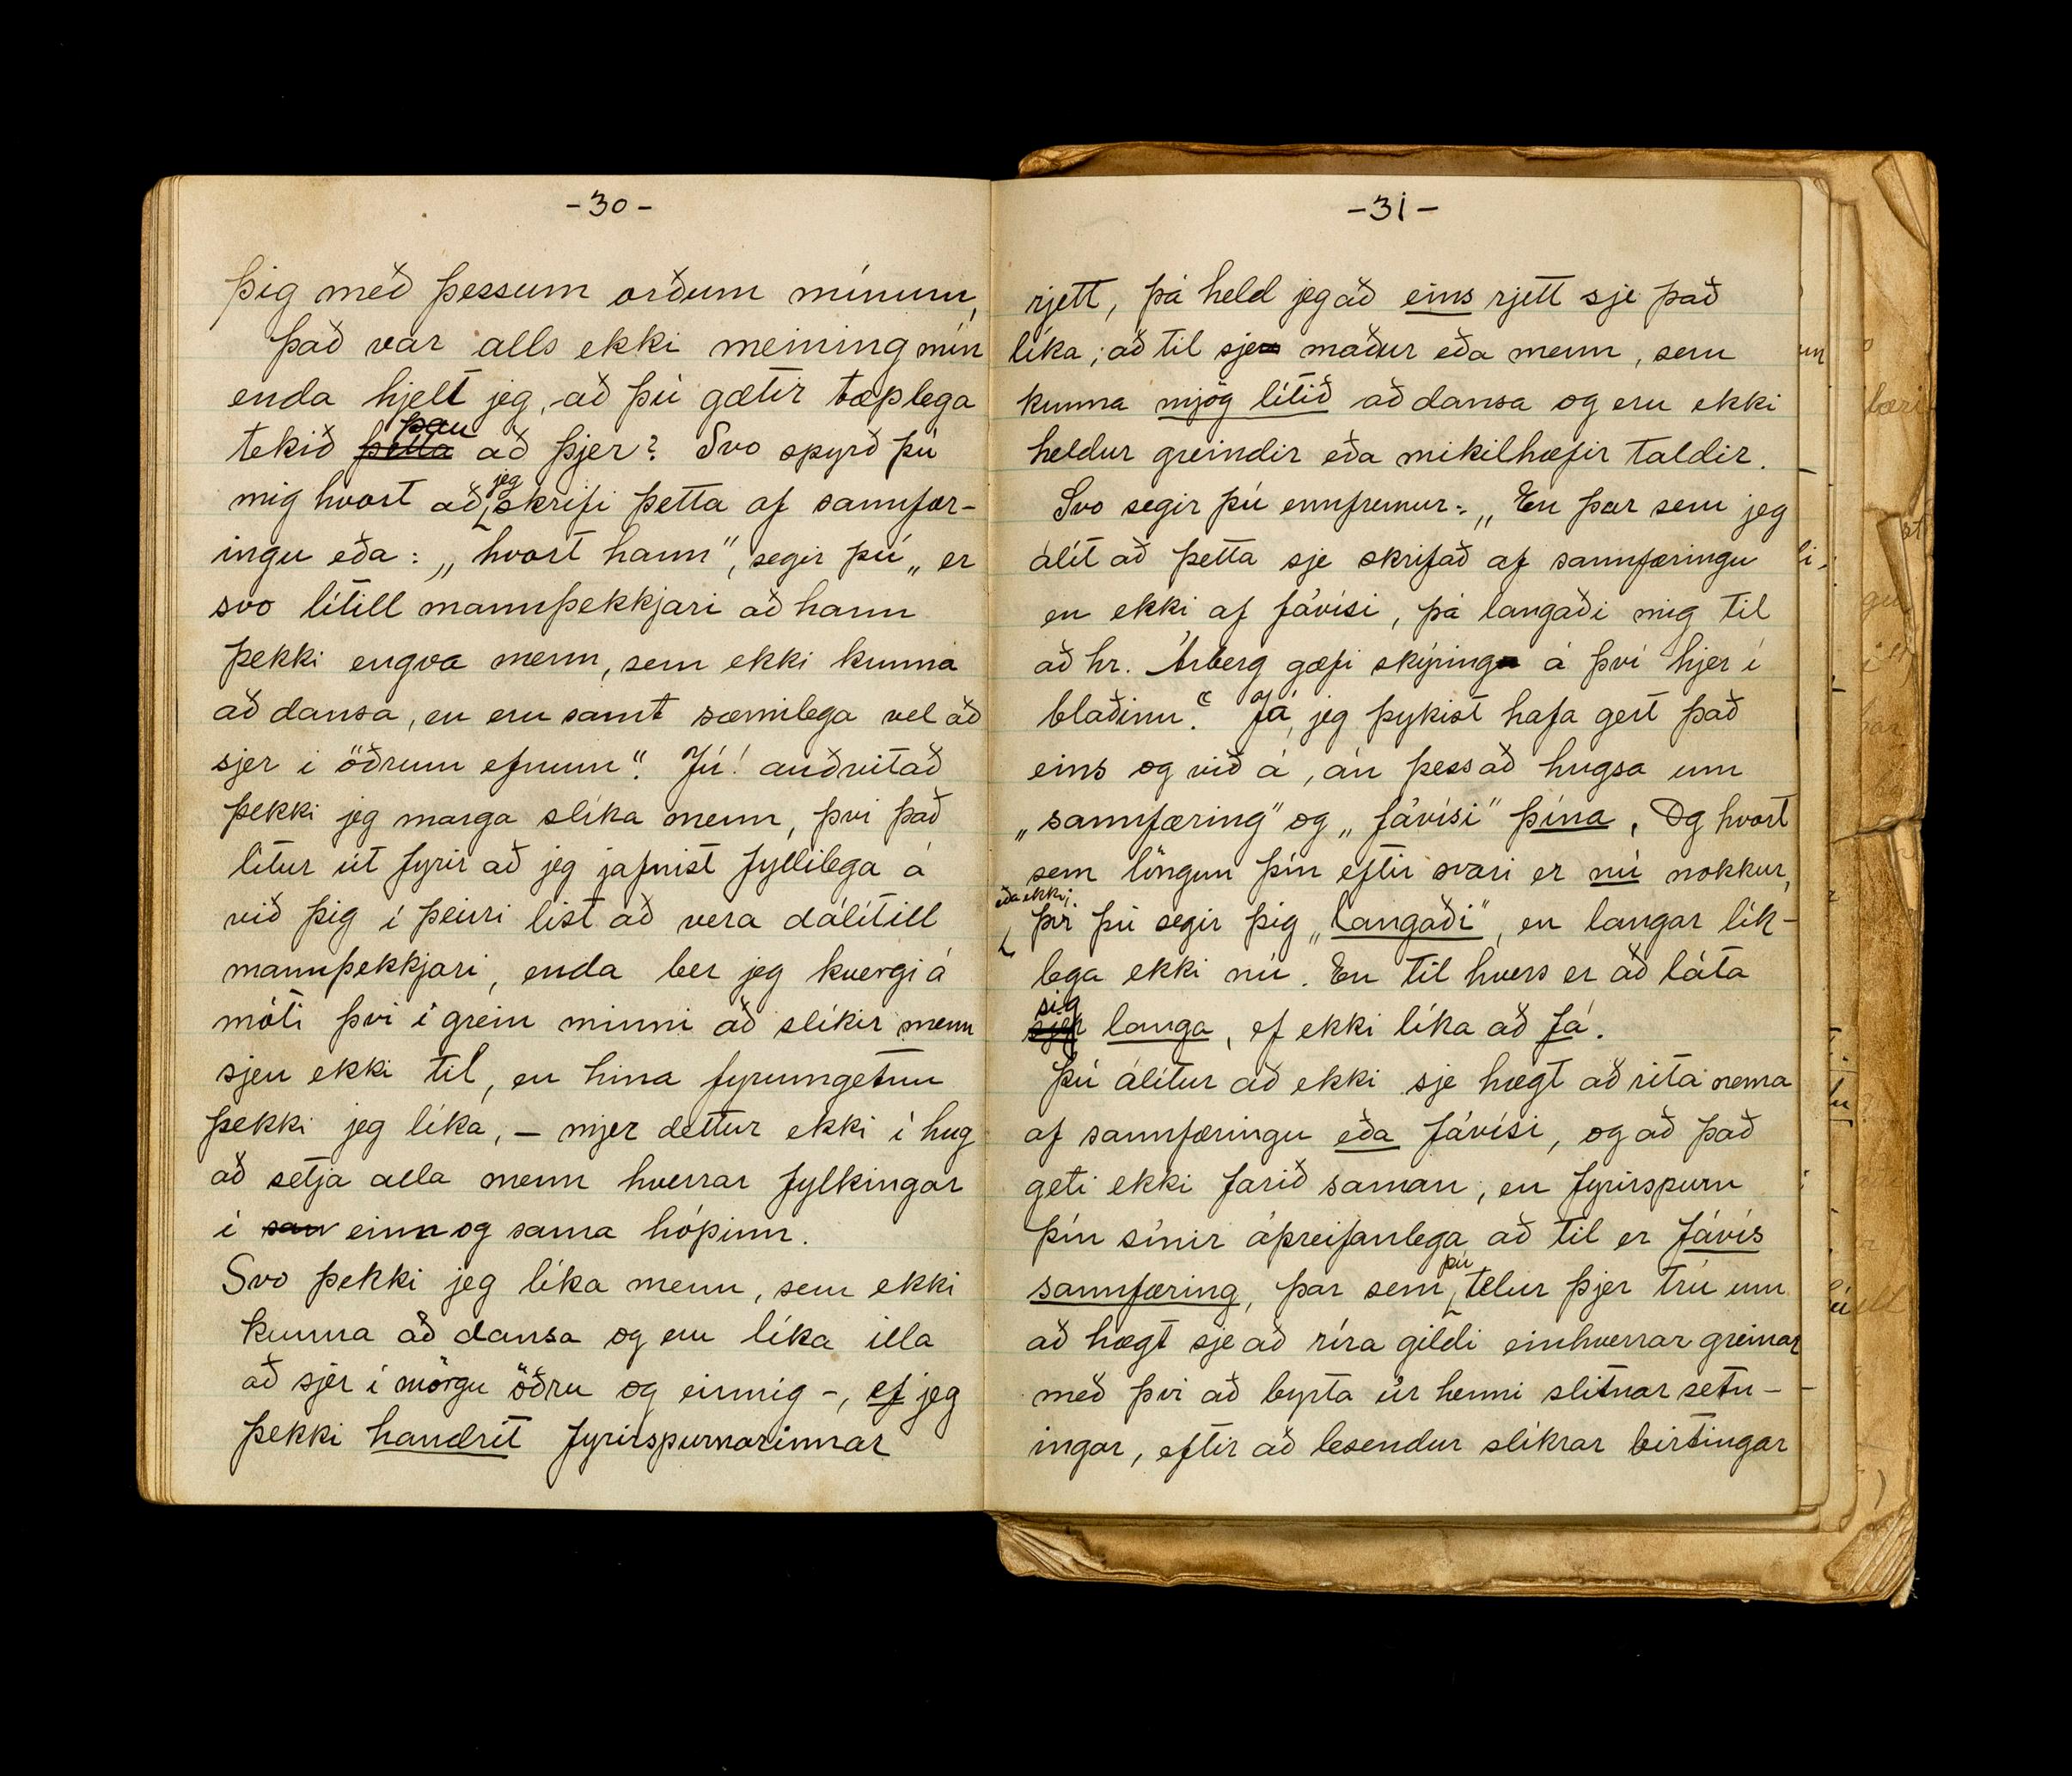 -30-
þig með þessum orðum mínum,
það var alls ekki meining mín
enda hjelt jeg, að þú gætir tæplega
tekið þetta þau að þjer? Svo spyrð þú
mig hvort að jeg skrifi þetta af sannfær-
ingu eða: „hvort hann", segir þú „er
svo lítill mannþekkjari að hann
þekki engva menn, sem ekki kunna
að dansa, en eru samt sæmilega vel að
sjer í öðrum efnum". Jú! auðvitað
þekki jeg marga slíka menn, því það
lítur út fyrir að jeg jafnist fyllilega á
við þig í þeirri list að vera dálítill
mannþekkjari, enda ber jeg hvergi á
móti því í grein minni að slíkir menn
sjeu ekki til, en hina fyrumgetnu
þekki jeg líka, – mjer dettur ekki í hug
að setja alla menn hverrar fylkingar
í sam einn og sama hópinn.
Svo þekki jeg líka menn, sem ekki
kunna að dansa og eru líka illa
að sjer í mörgu öðru og einnig -, ef jeg
þekki handrit fyrirspurnarinnar
-31-
rjett, þá held jeg að eins rjett sje það
líka; að til sje maður eða menn, sem
kunna mjög lítið að dansa og eru ekki
heldur greindir eða mikilhæfir taldir.
Svo segir þú ennfremur: „En þar sem jeg
álít að þetta sje skrifað af sannfæringu
en ekki af fávísi, þá langaði mig til
að hr. Árberg gæfi skýring á því hjer í
blaðinu". Já, jeg þykist hafa gert það
eins og við á, án þess að hugsa um
„sannfæring" og „fávísi" þína. Og hvort
sem löngun þín eftir svari er nú nokkur,
eða ekki, því þú segir þig „langaði", en langar lík-
lega ekki nú. En til hvers er að láta
sjer sig langa, ef ekki líka að fá.
Þú álítur að ekki sje hægt að rita nema
af sannfæringu eða fávísi, og að það
geti ekki farið saman, en fyrirspurn
þín sínir áþreifanlega að til er fávís
sannfæring, þar sem þú telur þjer trú um
að hægt sje að ríra gildi einhverrar greinar
með því að byrta úr henni slitnar setn-
ingar, eftir að lesendur slíkrar birtingar